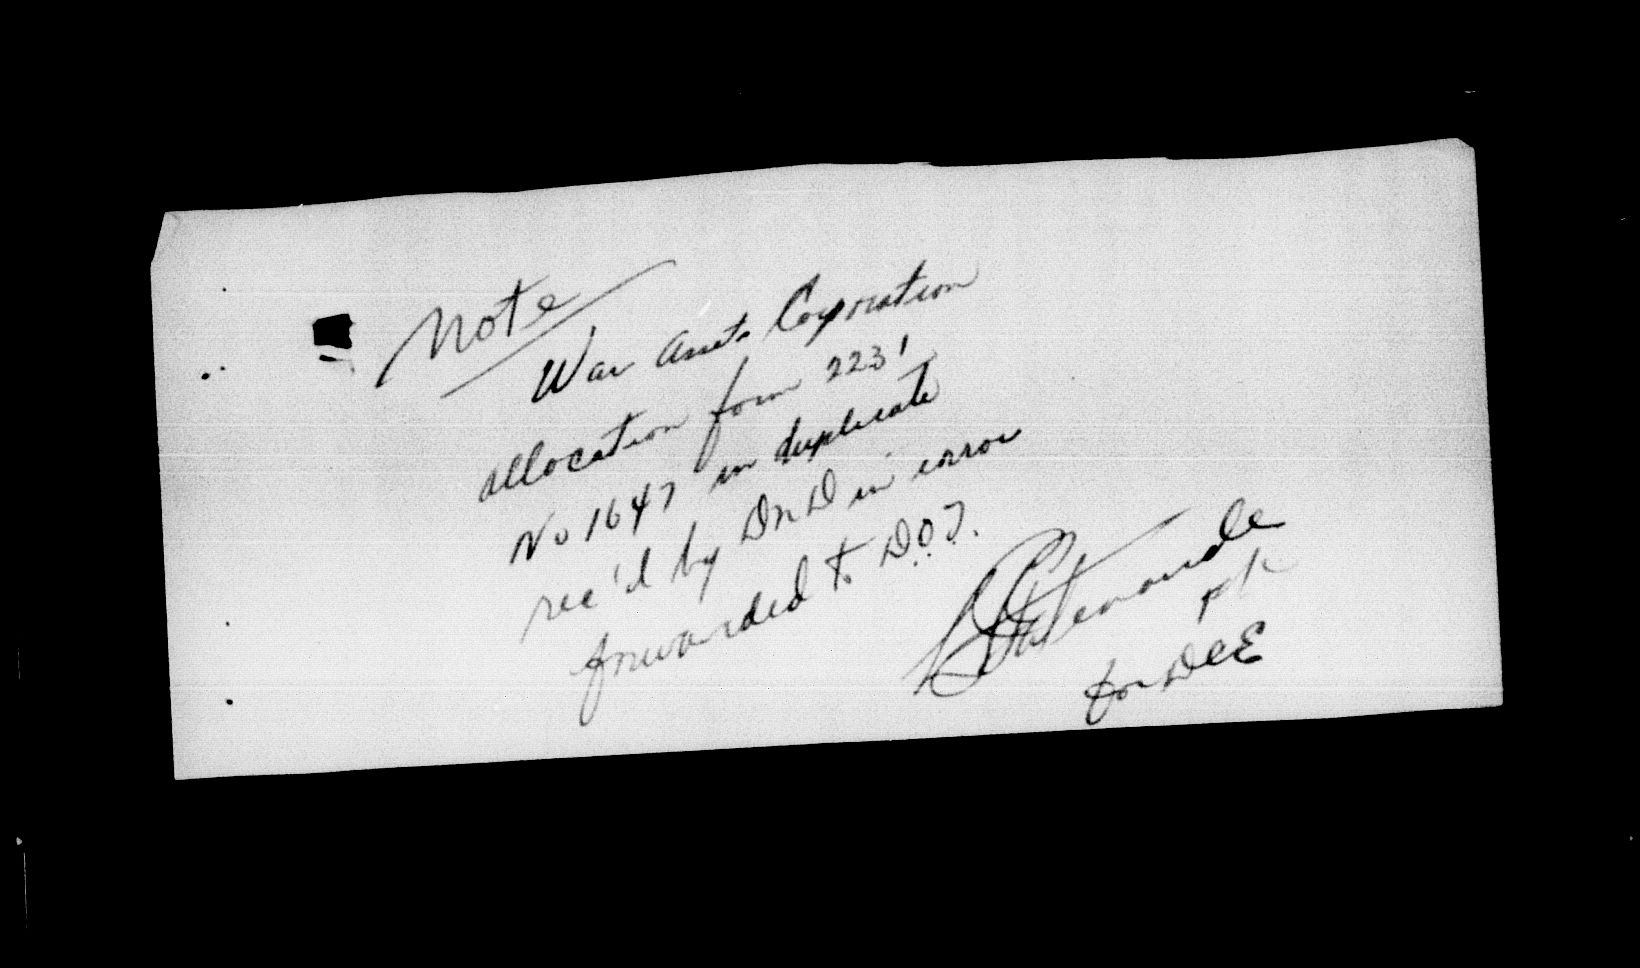 Note
War Assets Corporation
allocation form 2231
No 1647 in duplicate
rec'd by DND in error
forwarded to D.O.T.
for DCE